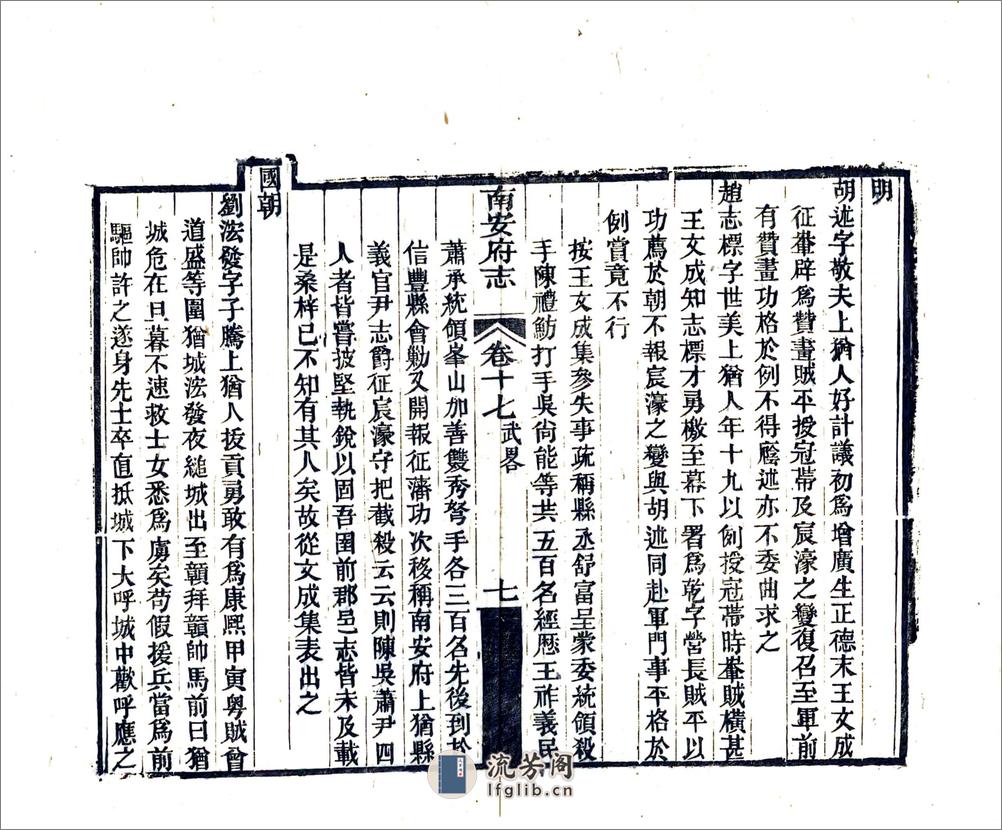 明
胡述字敬夫上猶人好計議初爲增廣生正德末王文成
征輋辟爲贊畫賊平授冠帶及宸濠之變復召至軍前
有贊畫功格於例不得廕述亦不委曲求之
趙志標字世美上猶人年十九以例授冠帶時輋賊橫甚
王文成知志標才勇檄至幕下署爲乾字營長賊平以
功薦於朝不報宸濠之變與胡述同赴軍門事平格於
例賞竟不行
按王文成集參失事疏稱縣丞舒富呈蒙委統領殺
手陳禮魴打手吳尙能等共五百名經歷王祚義民
南安府志
卷十七
武畧
七
蕭承統領峯山加善雙秀弩手各三百名先後到於
信豐縣會勦又開報征藩功次移稱南安府上猶縣
義官尹志爵征宸濠守把截殺云云則陳吳蕭尹四
人者皆嘗披堅執銳以固吾圉前郡邑志皆未及載
是桑梓已不知有其人矣故從文成集表出之
國朝
劉浤發字子騰上猶人拔貢勇敢有爲康熙甲寅粵賊曾
道盛等圍猶城浤發夜縋城出至贛拜贛帥馬前曰猶
城危在旦暮不速救士女悉爲虜矣苟假援兵當爲前
驅帥許之遂身先士卒直抵城下大呼城中歡呼應之
流芳阁
lfglib.cn